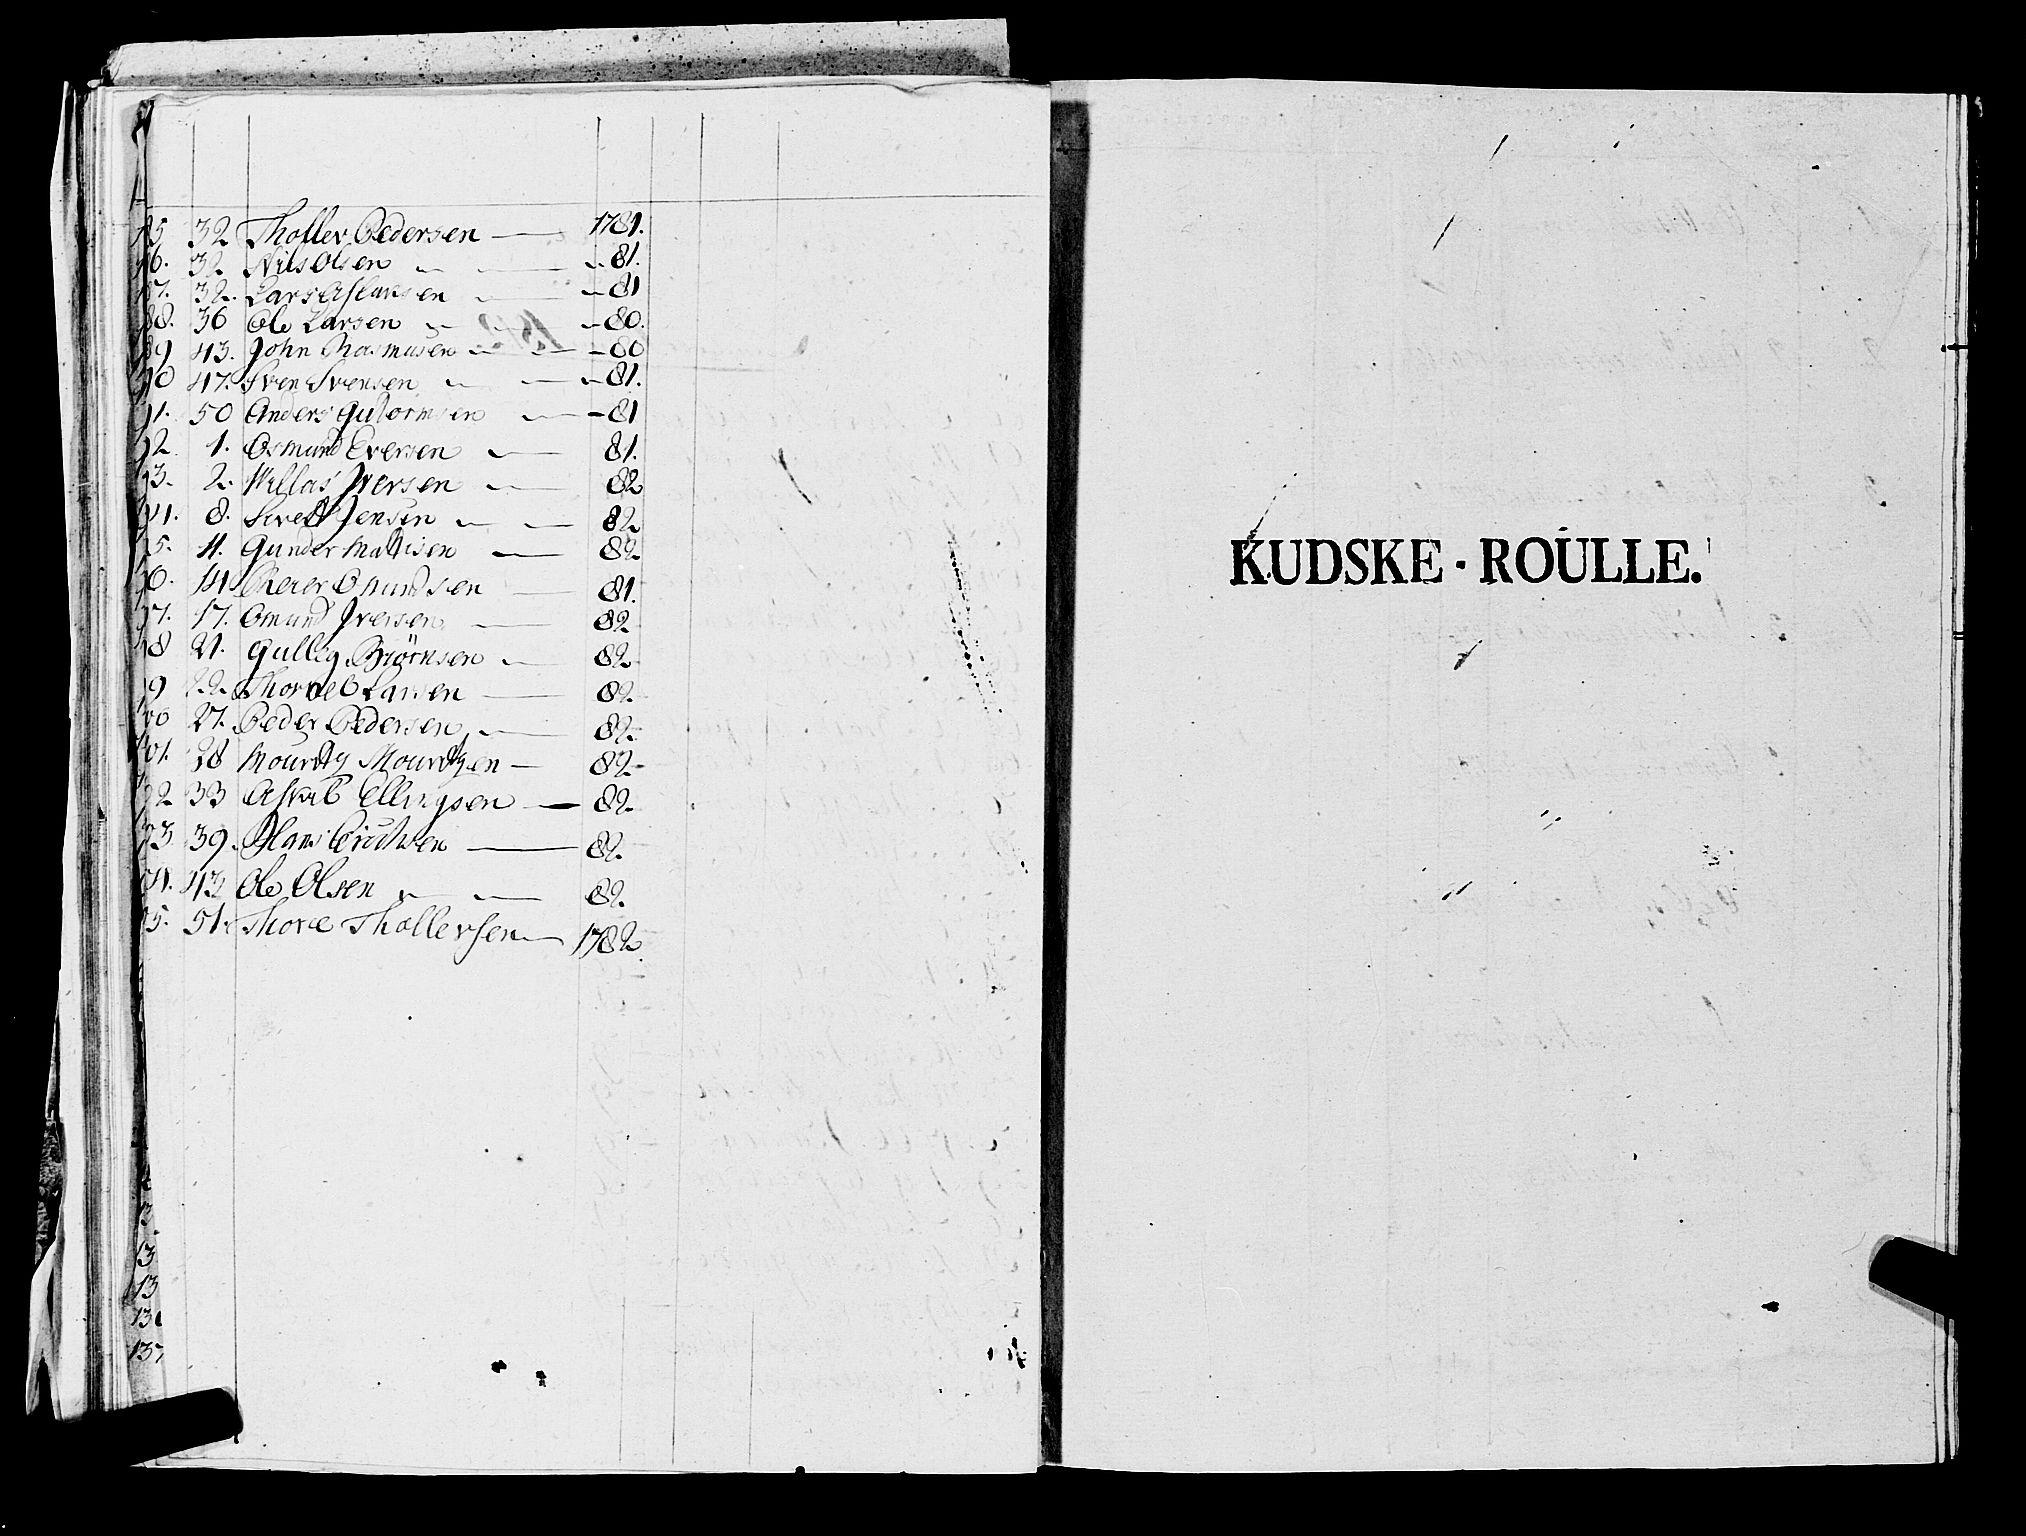 85 32 Thollev Pedersen — 1781.
86. 32 Nils Olsen — 81.
87. 32. Lars Aslaksen — 81
88. 36 Ole Larsen — 80.
89 43. John Rasmusen — 80
90 47. Sven Svensen — 81.
91. 50 Anders Gutormsen — 81
92 1. Osmund Eversen — 81.
93. 2. Villas Iversen — 82
94. 8. Sivert Jensen — 82
95. 11. Gunder Mattisen — 82
96. 14 Reier Omundsen — 81.
97. 17. Omund Iversen — 82
98 21. Gulleg Biörnsen — 82
99 22. Larsen — 82.
100 27. Peder Pedersen — 82.
101. 28 Mourtz Mourtzen — 82
102 33 Ellingsen — 82.
103 39. Hans Erichsen — 82.
104. 43 Ole Olsen — 82.
105. 51. Thore Thollevsen — 1782
13
13
137
KUDSKE - ROULLE.